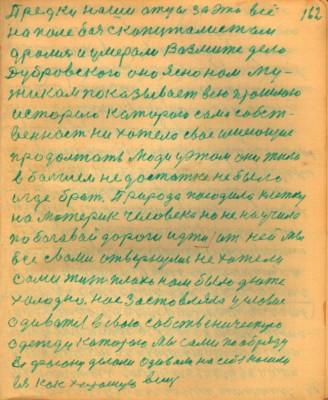 162
Предки наши отцы за это всё
на поле боя с капиталистам
дрались и умерали Возмите дело
Дубровского оно ясно нам му-
жикам показывает всю прошлою
историю каторого сама собст-
венность ни хотела свае имеющие
продолжать люди при этом они жили
в балшем недостатке не было
где брат. Природа посадила клетку
на материк человека но не научила
по богавай дороги идти от ней мы
все сваими отвернулися не хотели
сами жит плахо нам было даже
холодно, нас заставляла условие
одивать в свою собственическую
одежду каторою мы сами по обряду
делали одевали на себя носили
ея как хорошую вещ